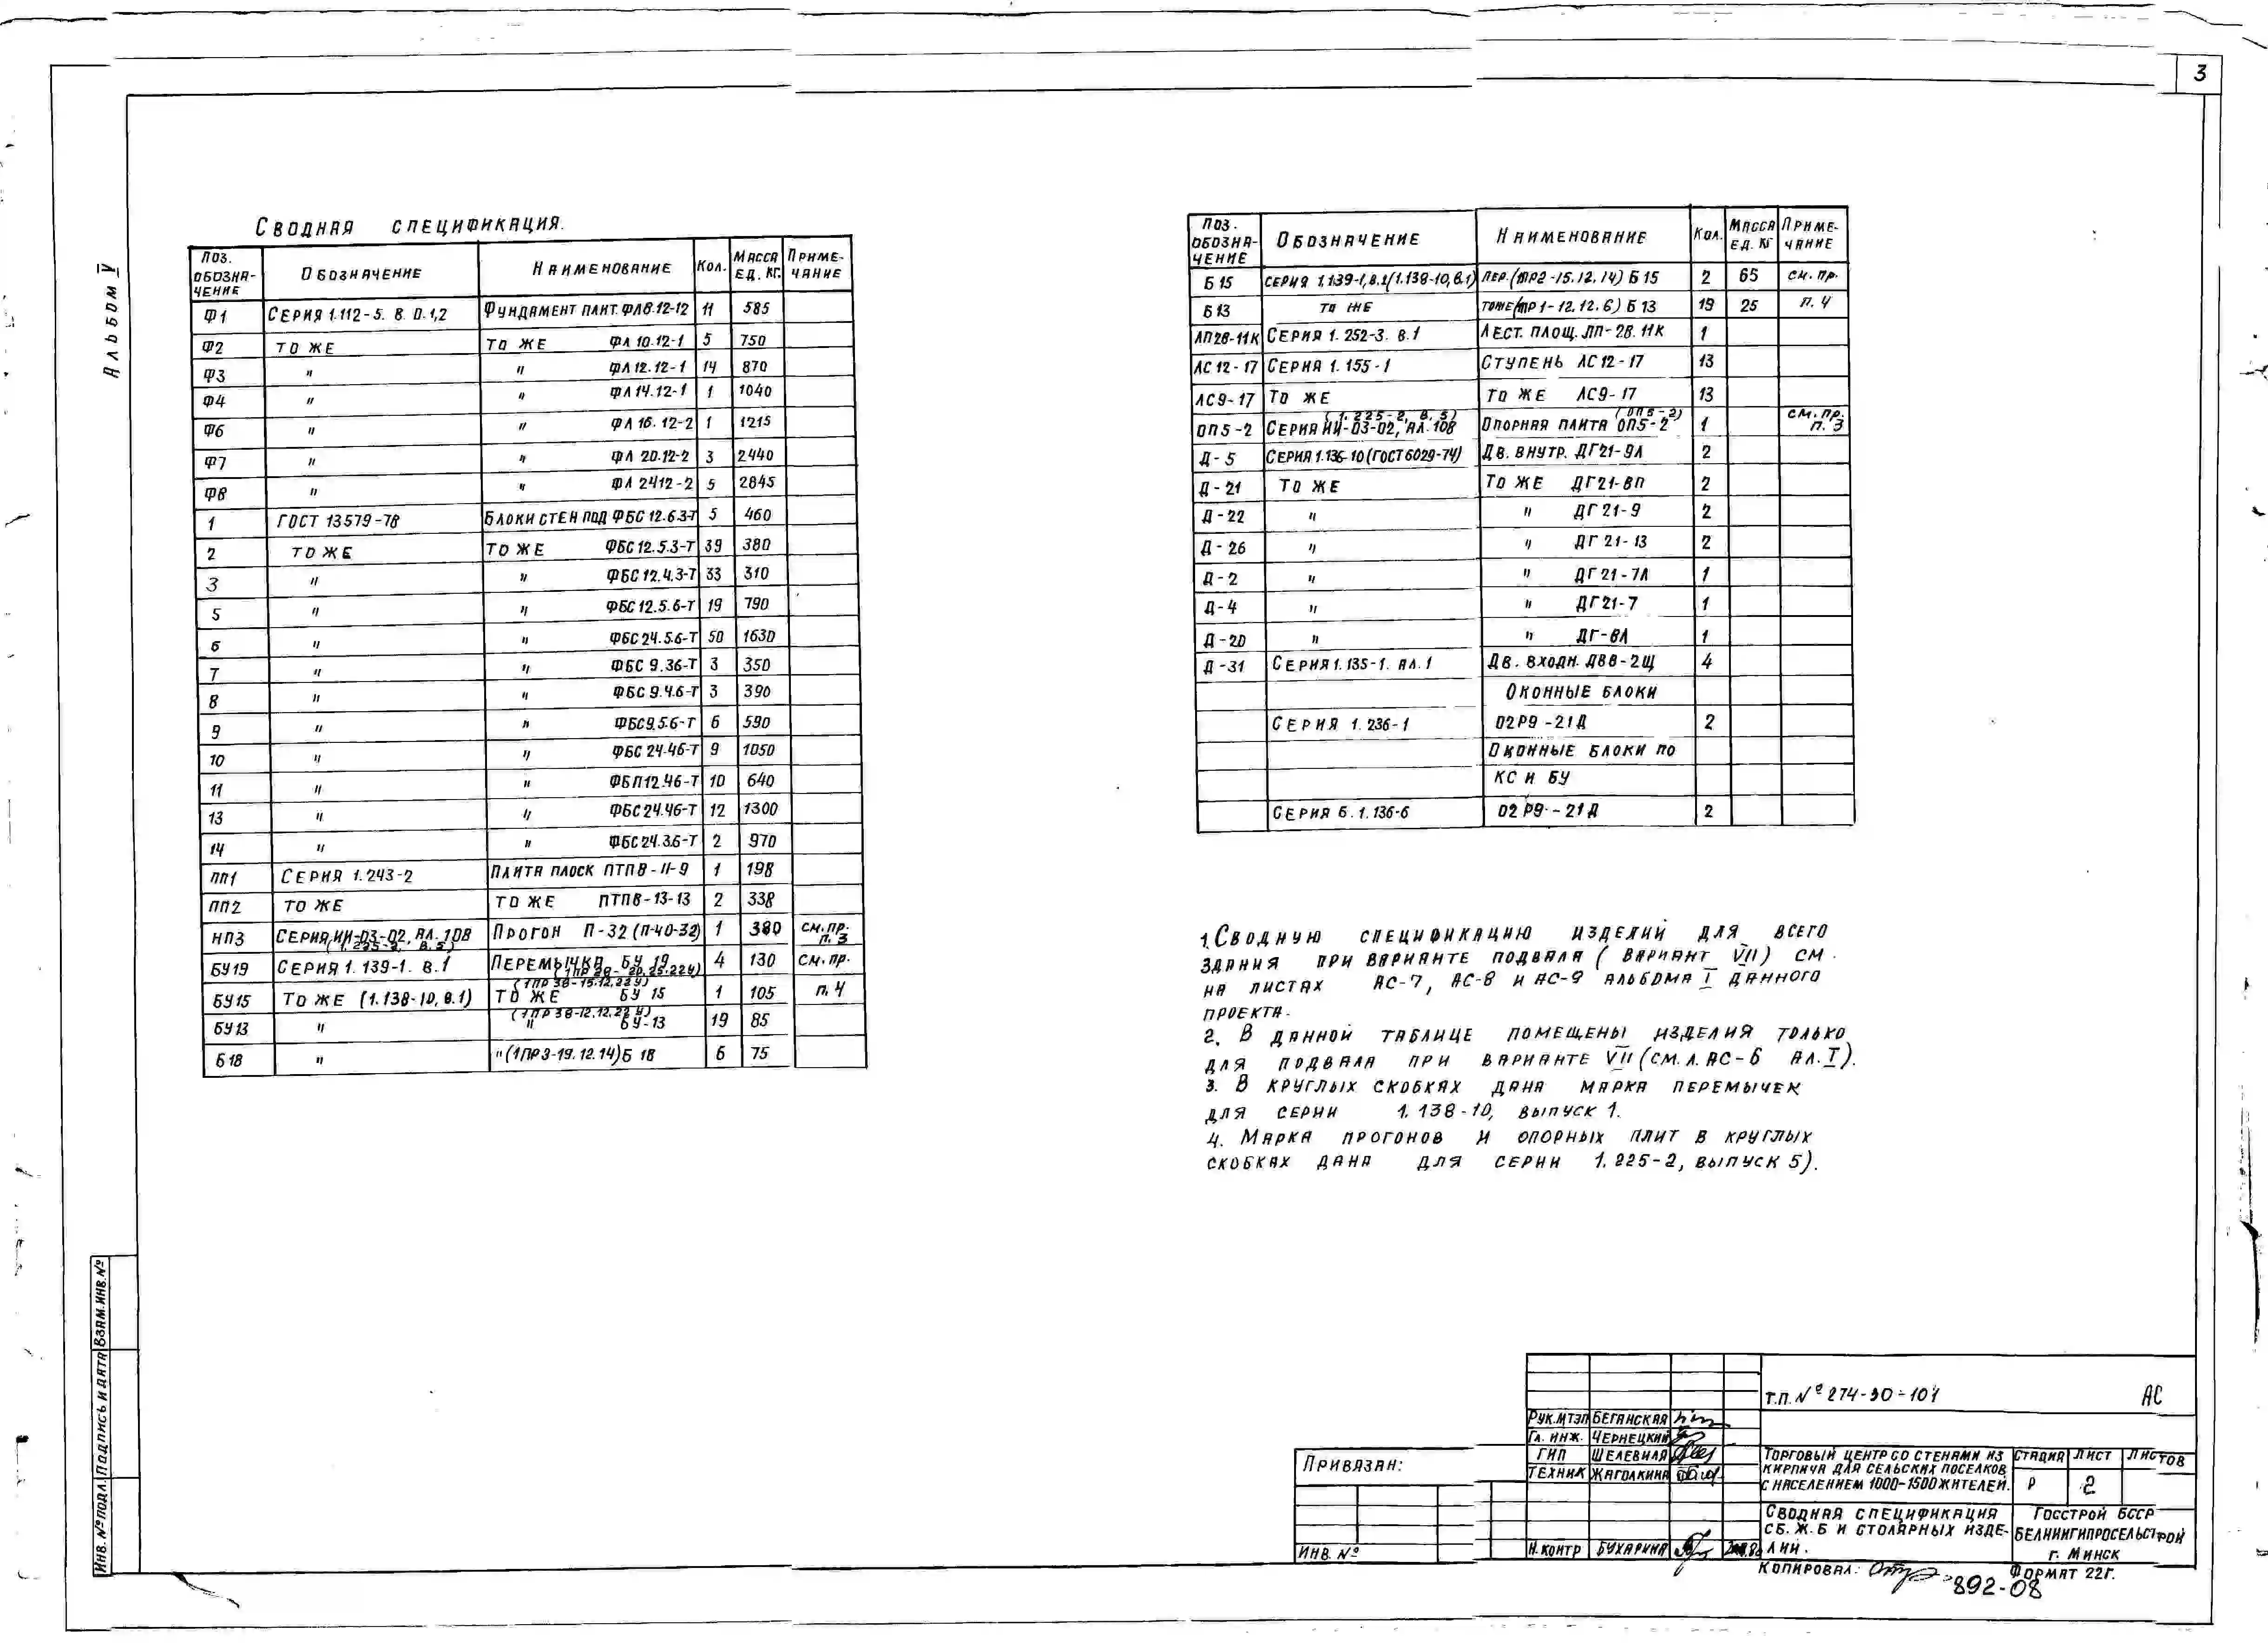 3
Альбом V
Сводная спецификация.
Поз. обозначение Обозначение Наименование Кол. Масса ед. кг. Примечание
Ф1 Серия 1.112-5. В. 0.1,2 Фундамент плит. ФЛ8.12-12 11 585
Ф2 то же то же ФЛ 10.12-1 5 750
Ф3 " " ФЛ 12.12-1 14 870
Ф4 " " ФЛ 14.12-1 1 1040
Ф6 " " ФЛ 16.12-2 1 1215
Ф7 " " ФЛ 20.12-2 3 2440
Ф8 " " ФЛ 2412-2 5 2845
1 ГОСТ 13579-78 Блоки стен под ФБС 12.6.3-Т 5 460
2 то же то же ФБС 12.5.3-Т 39 380
3 " " ФБС 12.4.3-Т 33 310
5 " " ФБС 12.5.6-Т 19 790
6 " " ФБС 24.5.6-Т 50 1630
7 " " ФБС 9.36-Т 3 350
8 " " ФБС 9.4.6-Т 3 390
9 " " ФБС9.5.6-Т 6 590
10 " " ФБС 24.46-Т 9 1050
11 " " ФБП12.46-Т 10 640
13 " " ФБС 24.46-Т 12 1300
14 " " ФБС 24.36-Т 2 970
ПП1 Серия 1.243-2 Плита плоск ПТП8-11-9 1 198
ПП2 то же то же ПТП8-13-13 2 338
НП3 Серия ИИ-03-02, ал. 108 (1.225-2, в.5) Прогон П-32 (П-40-32) 1 380 см. пр. п. 3
БУ19 Серия 1.139-1. в.1 Перемычка БУ 19 (1ПР 28-20.25.22У) 4 130 см. пр.
БУ15 То же (1.138-10, в.1) то же БУ 15 (1ПР 38-15.12.22У) 1 105 п. 4
БУ13 " " БУ-13 (1ПР 38-12.12.22У) 19 85
Б18 " " (1ПР3-19.12.14) Б 18 6 75
Поз. обозначение Обозначение Наименование Кол. Масса ед. кг Примечание
Б15 серия 1.139-1, в.1 (1.138-10, в.1) пер. (1ПР2-15.12.14) Б 15 2 65 см. пр.
Б13 то же тоже (1ПР1-12.12.6) Б 13 19 25 п. 4
ЛП28-11К Серия 1.252-3. в.1 Лест. площ. ЛП-28.11К 1
ЛС12-17 Серия 1.155-1 Ступень ЛС12-17 13
ЛС9-17 То же то же ЛС9-17 13
ОП5-2 Серия ИИ-03-02, ал. 108 (1.225-2, в.5) Опорная плита ОП5-2 (ОП5-2) 1 см. пр. п. 3
Д-5 Серия 1.136-10 (ГОСТ 6029-74) Дв. внутр. ДГ21-9Л 2
Д-21 То же То же ДГ21-8П 2
Д-22 " " ДГ21-9 2
Д-26 " " ДГ 21-13 2
Д-2 " " ДГ21-7Л 1
Д-4 " " ДГ21-7 1
Д-20 " " ДГ-8Л 1
Д-31 Серия 1.135-1. ал. 1 Дв. входн. ДВ8-2Щ 4
Оконные блоки
Серия 1.236-1 02Р9-21Д 2
Оконные блоки по
КС и БУ
Серия б. 1.136-6 02Р9-21Д 2
1. Сводную спецификацию изделий для всего
здания при варианте подвала (вариант VII) см.
на листах АС-7, АС-8 и АС-9 альбома I данного
проекта.
2. В данной таблице помещены изделия только
для подвала при варианте VII (см. л. АС-6 ал. I).
3. В круглых скобках дана марка перемычек
для серии 1.138-10, выпуск 1.
4. Марка прогонов и опорных плит в круглых
скобках дана для серии 1.225-2, выпуск 5).
Т.П. № 274-30-101 АС
Рук.МТЭП Беганская
Гл. инж. Чернецкий
ГИП Шелевиля
Техник Жаголкина
Н. контр Бухарина
Торговый центр со стенами из
кирпича для сельских поселков
с населением 1000-1500 жителей.
Стадия Лист Листов
Р 2
Сводная спецификация
сб. ж.б и столярных изде-
лий.
Госстрой БССР
Белниигипросельстрой
г. Минск
Привязан:
Инв. №
Копировал: Формат 22г.
892-08
Инв. № подл. Подпись и дата Взам. инв. №